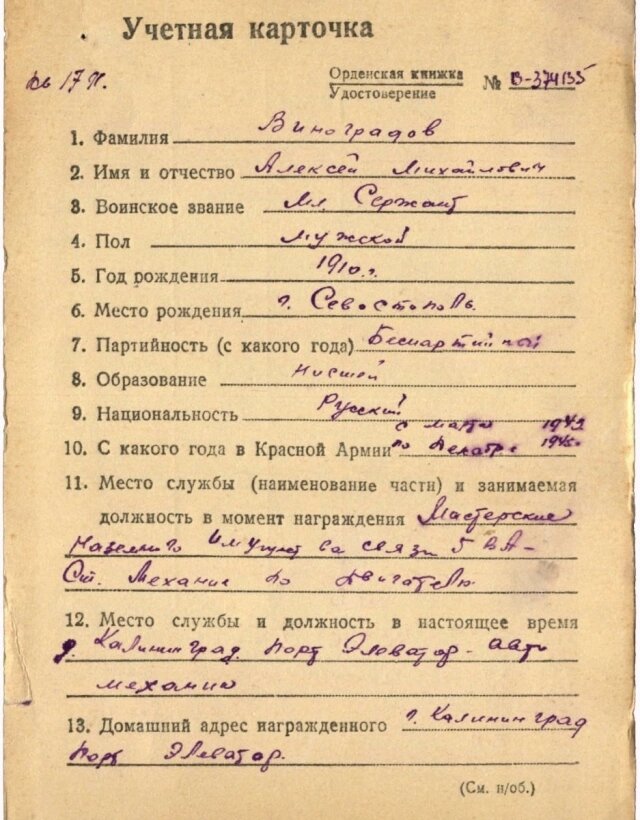 Учетная карточка
Орденская книжка
Удостоверение № В-374135
1. Фамилия Виноградов
2. Имя и отчество Алексей Михайлович
3. Воинское звание Мл. Сержант
4. Пол мужской
5. Год рождения 1910 г.
6. Место рождения г. Севостополь.
7. Партийность (с какого года) Беспартийный
8. Образование низшей
9. Национальность Русский
с марта 1942
10. С какого года в Красной Армии по Декабрь
11. Место службы (наименование части) и занимаемая
должность в момент награждения Мастерские
Наземного Имущества связи 5 ВА-
Ст. Механик по двигателю
12. Место службы и должность в настоящее время
г. Калининград. порт Элеватор- авто
механик
13. Домашний адрес награжденного г. Калининград
порт Элеватор.
(См. н/об.)